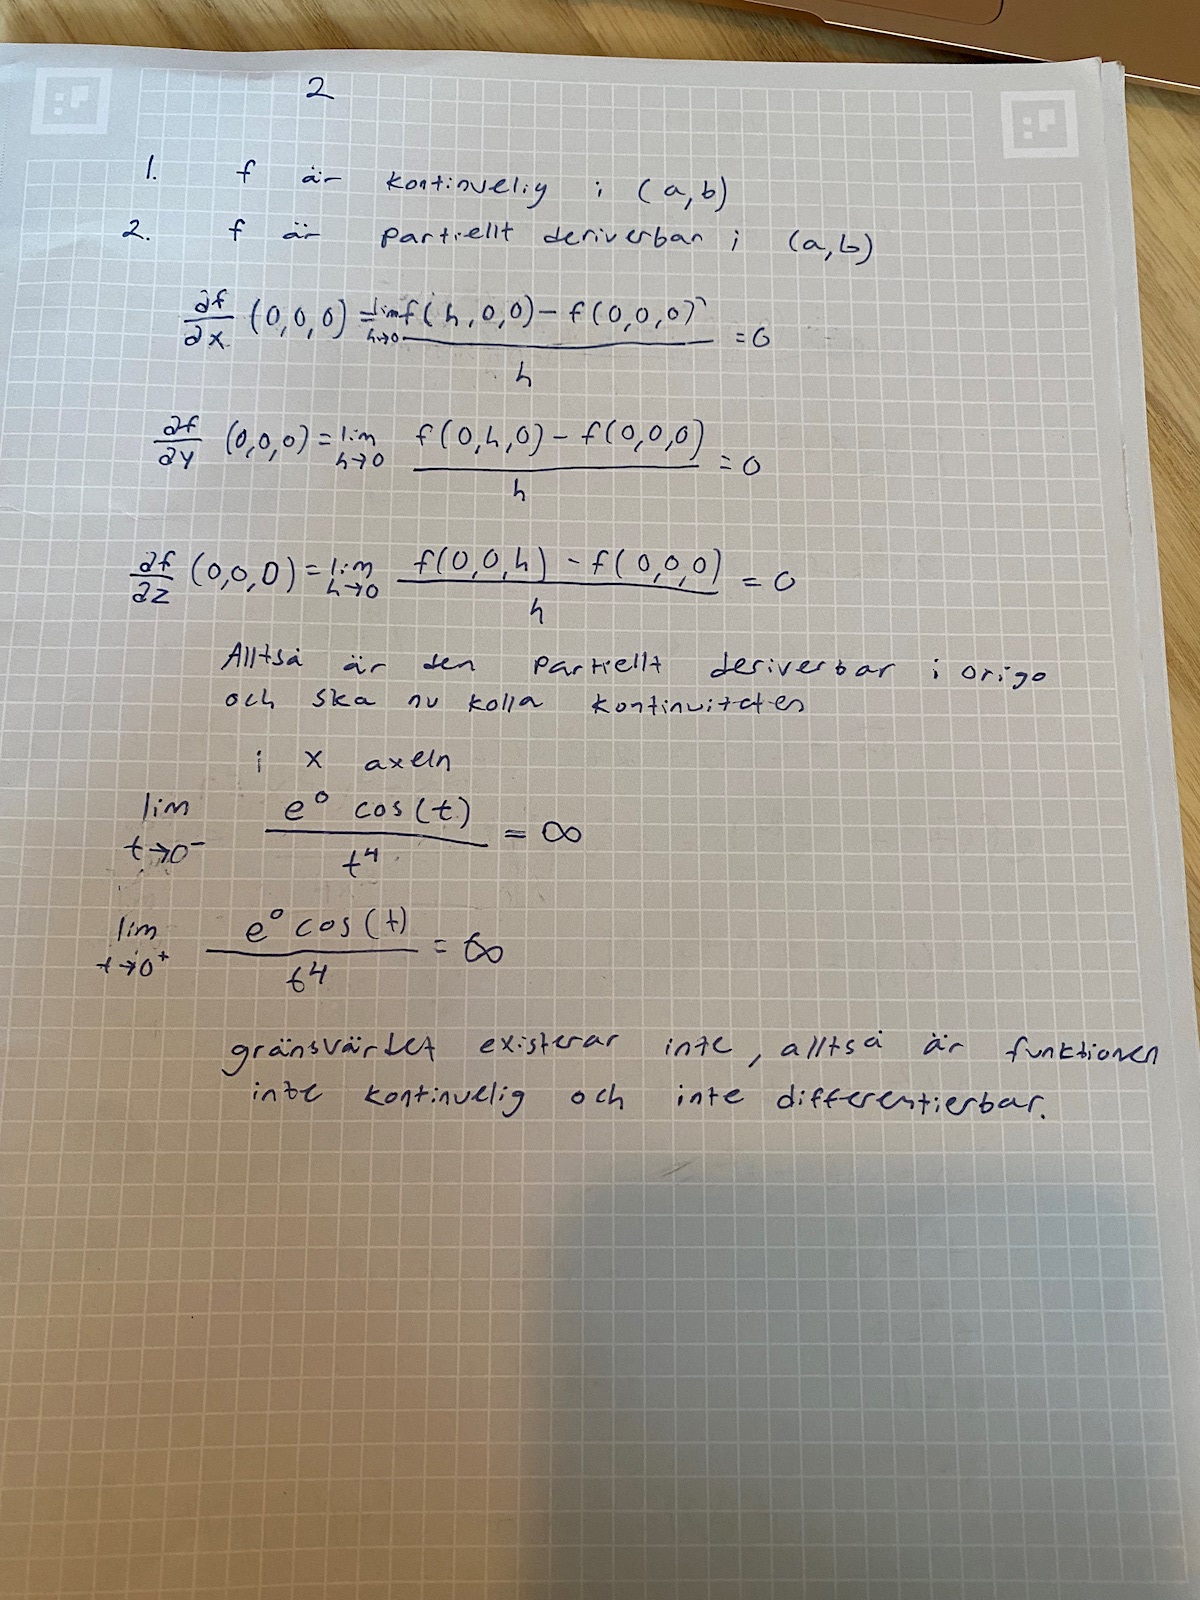 2
1. f är kontinuelig i (a,b)
2. f är partiellt deriverbar i (a,b)
∂f/∂x (0,0,0) = lim h→0 (f(h,0,0) − f(0,0,0))/h = 0
∂f/∂y (0,0,0) = lim h→0 (f(0,h,0) − f(0,0,0))/h = 0
∂f/∂z (0,0,0) = lim h→0 (f(0,0,h) − f(0,0,0))/h = 0
Alltså är den partiellt deriverbar i origo
och ska nu kolla kontinuiteten
i x axeln
lim t→0⁻ (e⁰ cos(t))/t⁴ = ∞
lim t→0⁺ (e⁰ cos(t))/t⁴ = ∞
gränsvärdet existerar inte, alltså är funktionen
inte kontinuelig och inte differentierbar.